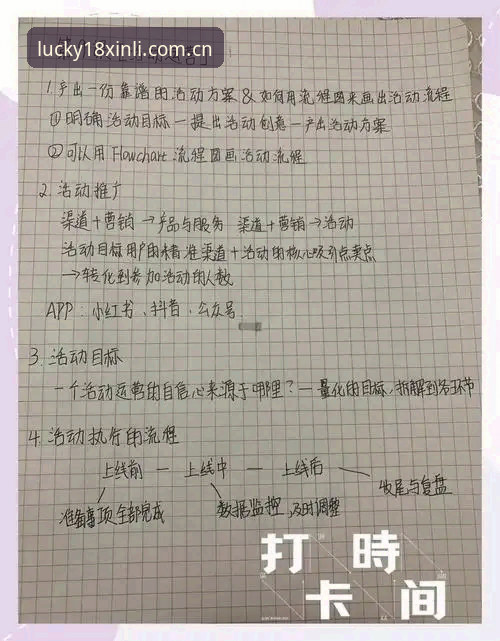 lucky18xinli.com.cn
1. 产出一份靠谱的活动方案 & 如何用流程图来画出活动流程
①明确活动目标—提出活动创意—产出活动方案
②可以用Flowchart 流程图画活动流程
2. 活动推广
渠道+营销→产品与服务 渠道+营销→活动
活动目标用户的精准渠道+活动的核心吸引点卖点
→转化到参加活动的人数
APP：小红书、抖音、公众号
3. 活动目标
一个活动运营的自信心来源于哪里？—量化的目标，拆解到各环节
4. 活动执行的流程
上线前 — 上线中 — 上线后
收尾与复盘
准备事项全部完成 数据监控，及时调整
打卡時间